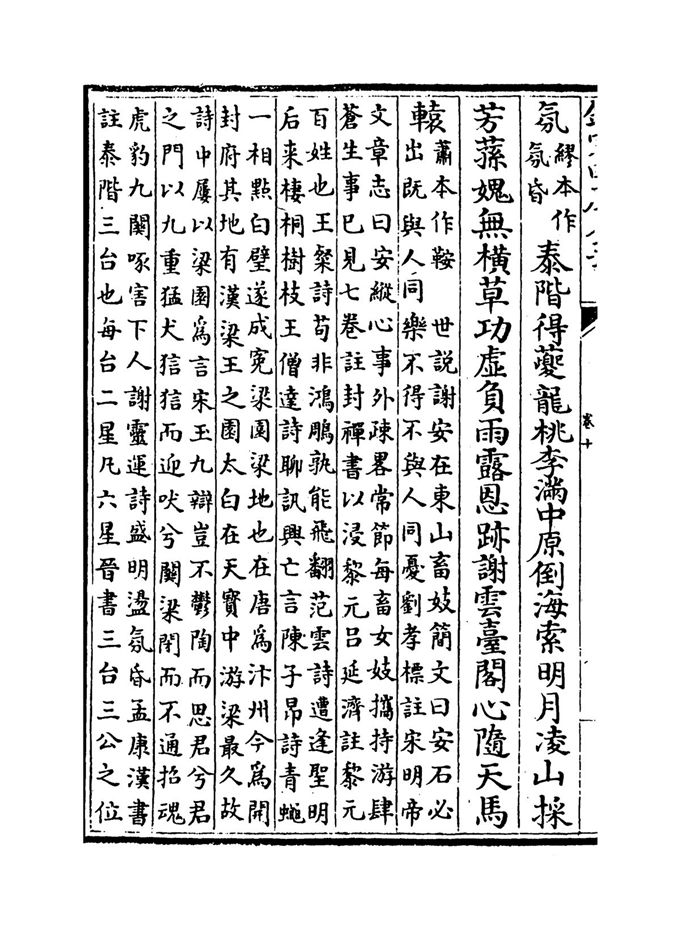 卷十
氛繆本作
氛昏
泰階得夔龍桃李滿中原倒海索明月凌山採
芳蓀媿無橫草功虛負雨露恩跡謝雲臺閣心隨天馬
轅蕭本作鞍　世說謝安在東山畜妓簡文曰安石必
出既與人同樂不得不與人同憂劉孝標註宋明帝
文章志曰安縱心事外疎畧常節每畜女妓攜持游肆
蒼生事已見七卷註封禪書以浸黎元呂延濟註黎元
百姓也王粲詩苟非鴻鵰孰能飛翻范雲詩遭逢聖明
后来棲桐樹枝王僧達詩聊訊興亡言陳子昂詩青蠅
一相點白璧遂成寃梁園梁地也在唐為汴州今為開
封府其地有漢梁王之園太白在天寳中游梁最久故
詩中屢以梁園為言宋玉九辯豈不鬱陶而思君兮君
之門以九重猛犬狺狺而迎吠兮闗梁閉而不通招魂
虎豹九闗啄害下人謝靈運詩盛明盪氛昏孟康漢書
註泰階三台也每台二星凡六星晉書三台三公之位